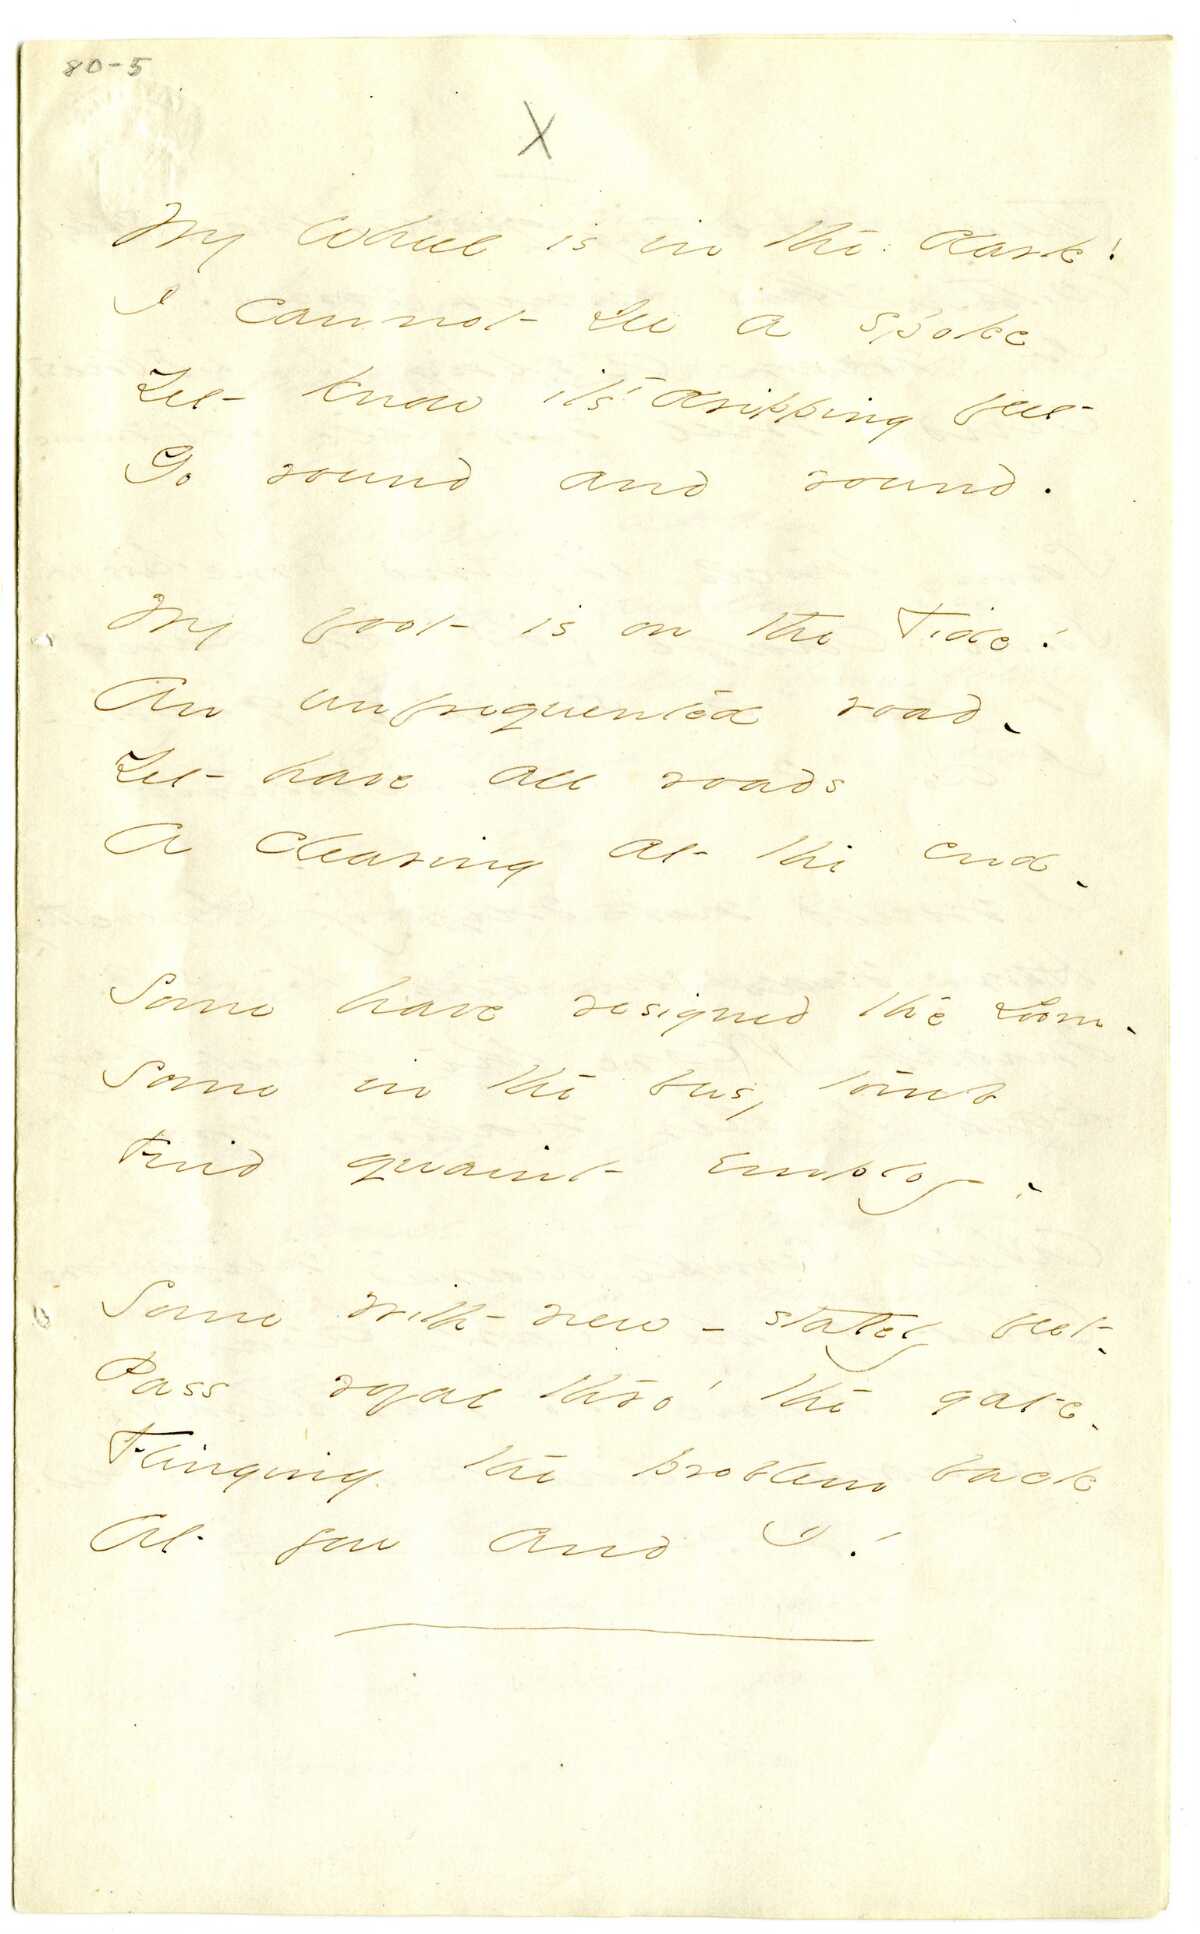 80-5
X
My Wheel is in the dark!
I cannot see a spoke
Yet know it's dripping feet
Go round and round.
My foot is on the Tide!
An unfrequented road -
Yet have all roads
A Clearing at the end -
Some have resigned the Loom -
Some in the busy tomb
Find quaint Employ -
Some with new - stately feet -
Pass royal thro' the gate -
Flinging the problem back
At you and I!